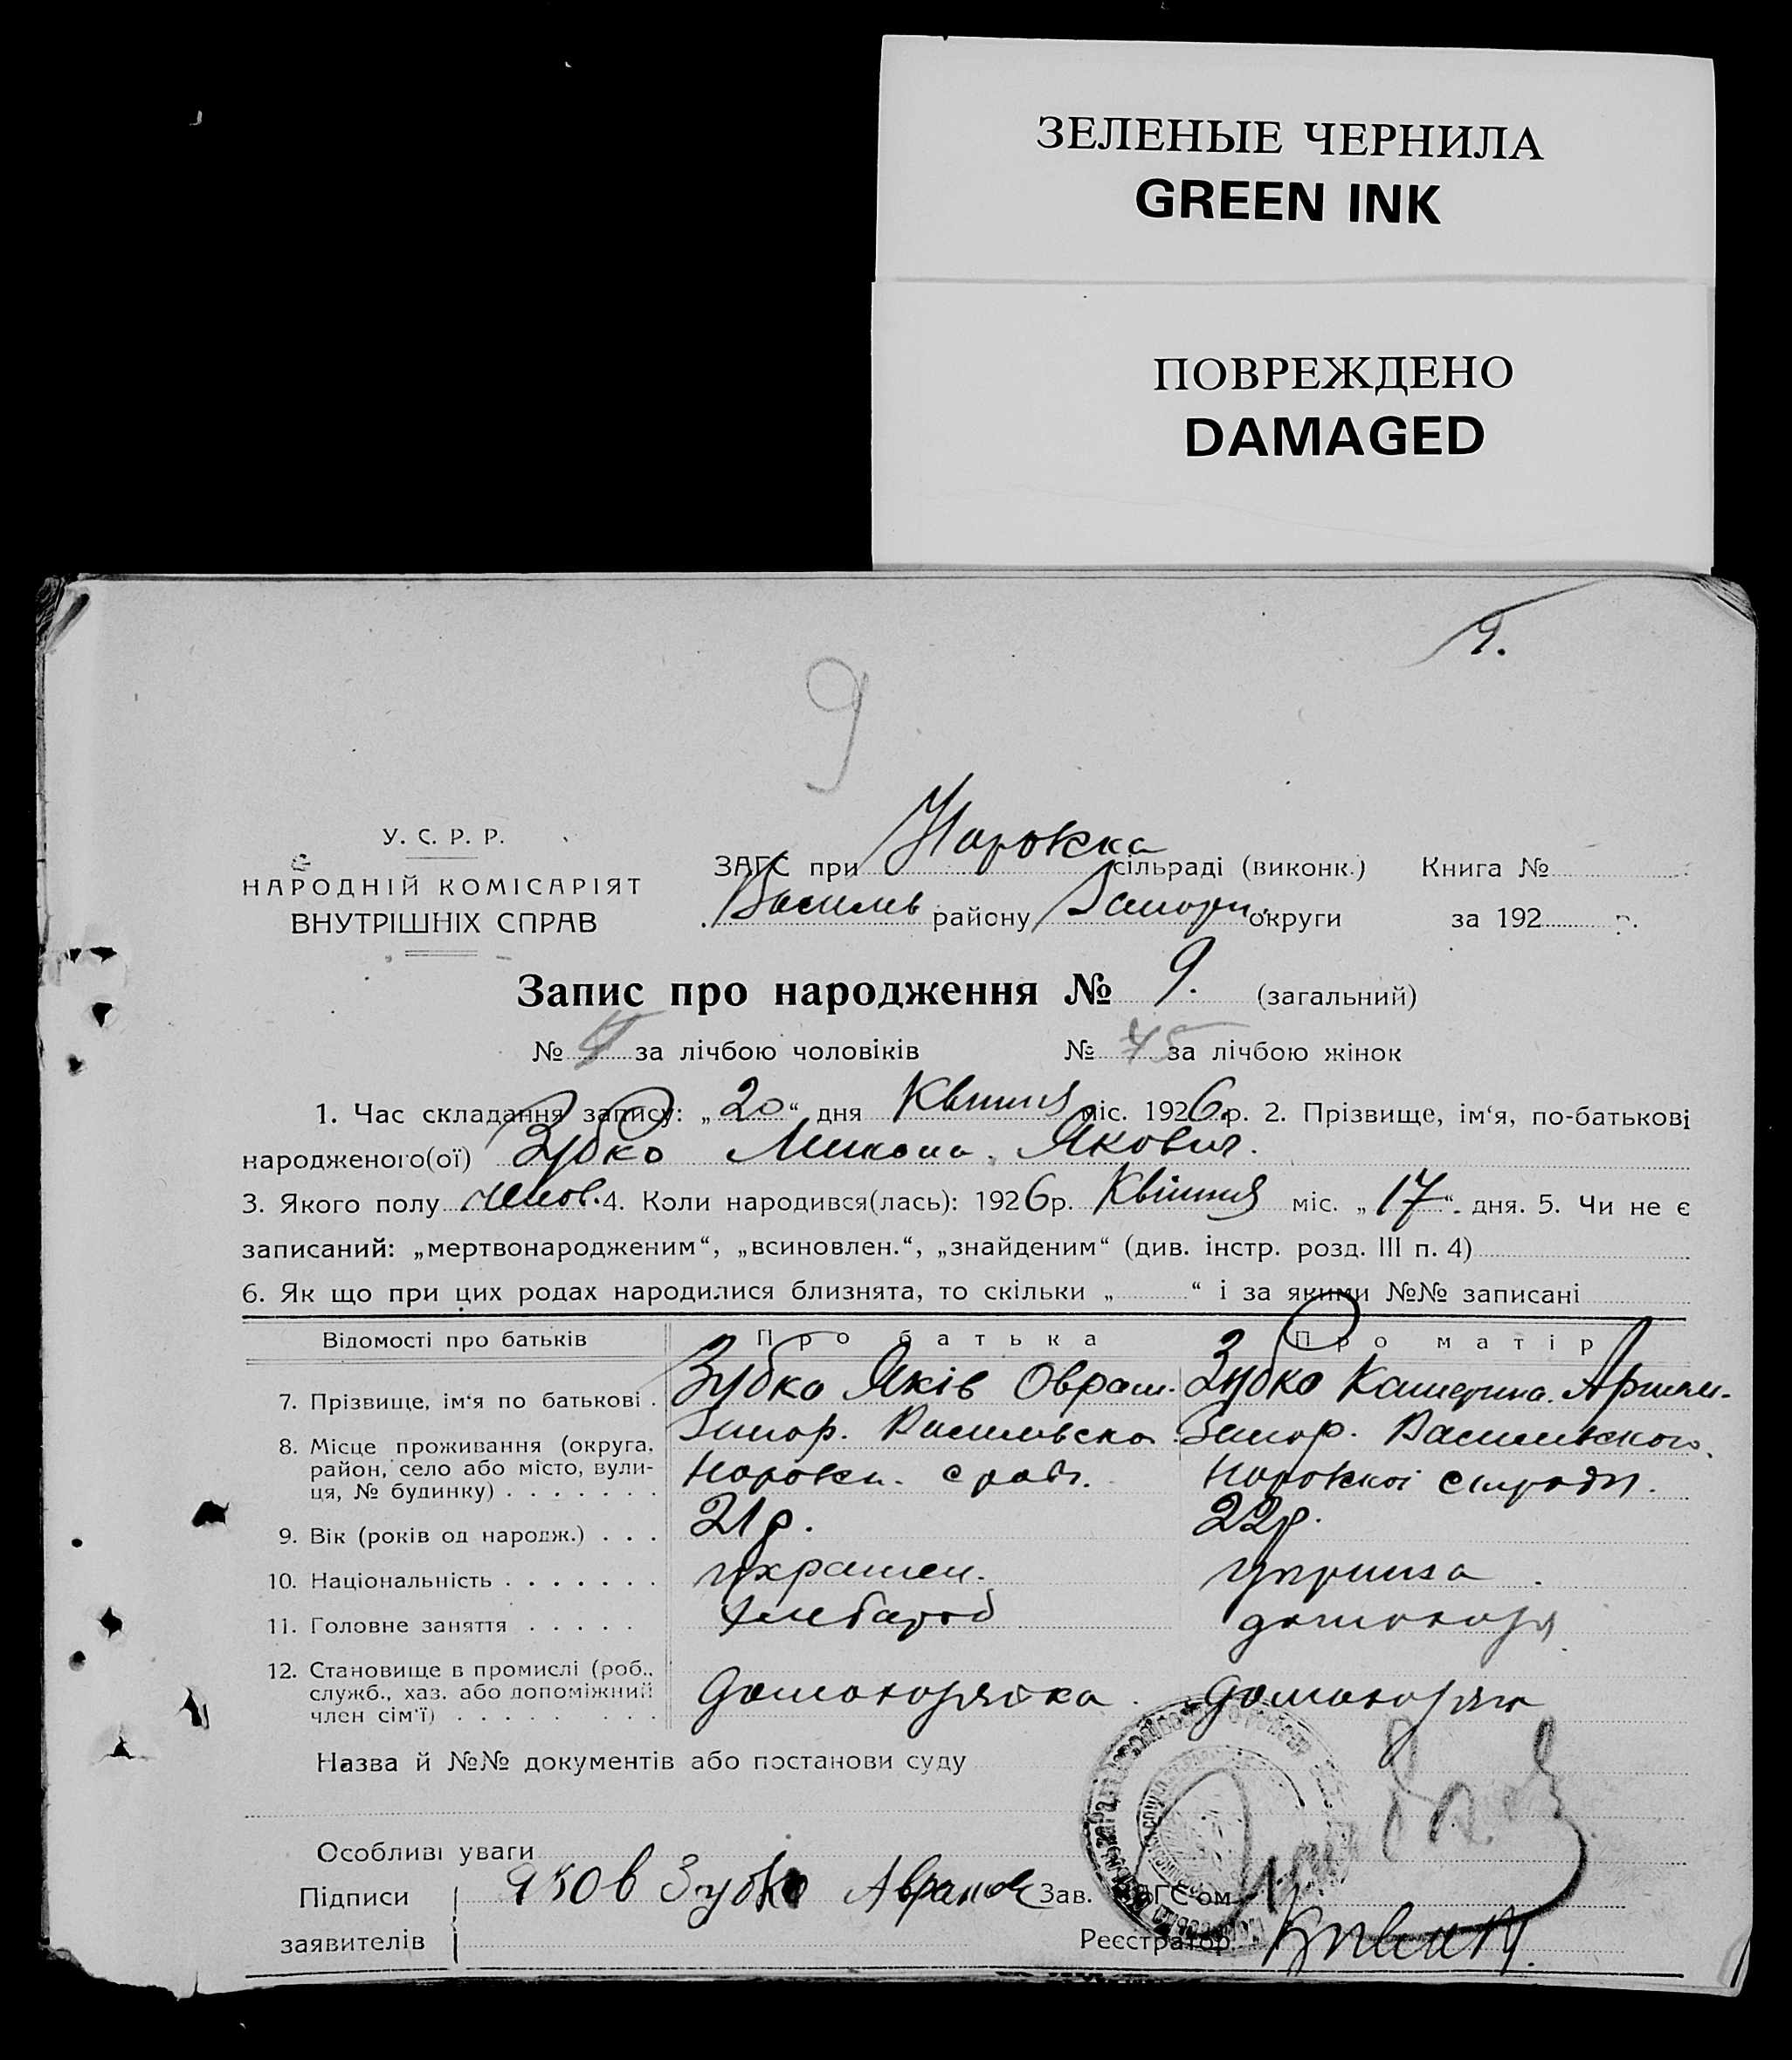 ЗЕЛЕНЫЕ ЧЕРНИЛА
GREEN INK
ПОВРЕЖДЕНО
DAMAGED
9.
9
У. С. Р. Р.
НАРОДНІЙ КОМІСАРІЯТ
ВНУТРІШНІХ СПРАВ
ЗАГС при сільраді (виконк.) Книга №
Василів району Запоріз. округи за 192 р.
Запис про народження № 9. (загальний)
№ за лічбою чоловіків № за лічбою жінок
1. Час складання запису: „20“ дня Квітня міс. 1926 р. 2. Прізвище, ім‘я, по-батькові
народженого(ої) Зубко Микола Якович.
3. Якого полу чолов. 4. Коли народився(лась): 1926 р. Квітня міс. „17“ дня. 5. Чи не є
записаний: „мертвонародженим“, „всиновлен.“, „знайденим“ (див. інстр. розд. III п. 4)
6. Як що при цих родах народилися близнята, то скільки „ “ і за якими №№ записані
Відомості про батьків Про батька Про матір
7. Прізвище, ім‘я по батькові . Зубко Яків Оврам. Зубко Катерина
8. Місце проживання (округа, Запор. Василівсько Запор. Василівського
район, село або місто, вули-
ця, № будинку)
9. Вік (років од народж.) . . . 21 р. 22 р.
10. Національність . . . . . . . украінец. українка
11. Головне заняття . . . . . хлібароб домохозя
12. Становище в промислі (роб.,
служб., хаз. або допоміжний
член сім‘ї)
Назва й №№ документів або постанови суду
Особливі уваги
Підписи Яков Зубко Аврамов Зав. ЗАГС‘ом
заявителів Реєстратор